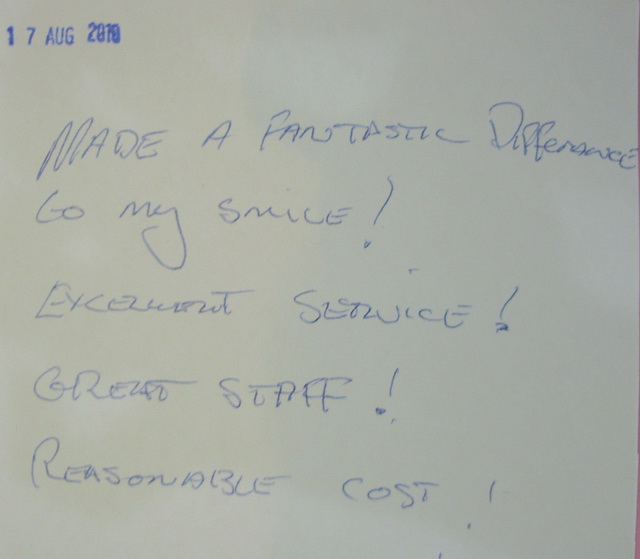 17 AUG 2010
MADE A FANTASTIC Difference
to my SMILE!
EXCELLENT SERVICE!
GREAT STAFF!
REASONABLE COST!